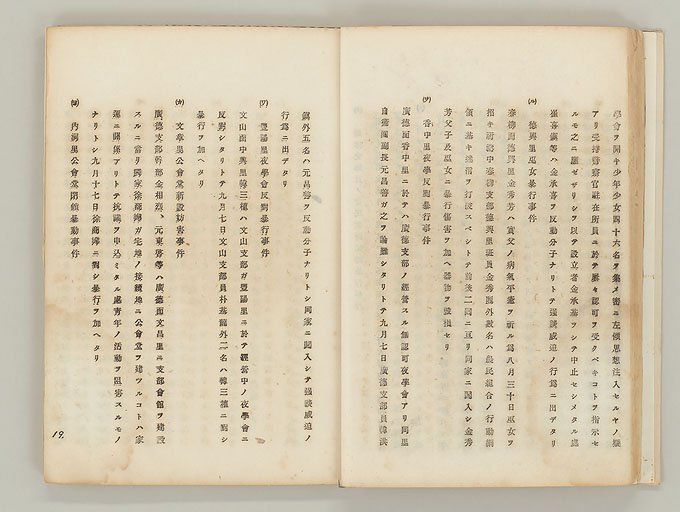 學會ヲ開キ少年少女四十六名ヲ集メ密ニ左傾思想注入セルヤノ疑
アリ受持警察官駐在所員ニ於テ屢々認可ヲ受クベキコトヲ指示セ
ルモ之ニ應ゼザリシヲ以テ設立者金承喜ヲシテ中止セシメタル處
崔喜鎭等ハ金承喜ヲ反動分子ナリトテ强談威迫ノ行爲ニ出デタリ
(ル) 德興里巫女暴行事件
泰物面德興里金秀芳ハ實父ノ病氣平癒ヲ祈ル爲八月三十日巫女ヲ
招キ祈禱中泰物支部德興里班員金秀麗外數名ハ農民組合ノ行動綱
領ニ基キ迷信ヲ打破スベシトテ前後二回ニ亘リ同家ニ闖入シ金秀
芳父子及巫女ニ暴行傷害ヲ加ヘ器物ヲ毁損セリ
(ヲ) 香中里夜學反對暴行事件
廣德面香中里ニ於テハ廣德支部ノ經營スル無認可夜學會アリ同里
自衞團團長元昌善ガ之ヲ論難シタリトテ九月七日廣德支部員韓洪
鎭外五名ハ元昌善ヲ反動分子ナリトシ同家ニ闖入シテ强談威迫ノ
行爲ニ出デタリ
(ワ) 豐陽里夜學會反對暴行事件
文山面中興里韓三權ハ文山支部ガ豐陽里ニ於テ經營中ノ夜學會ニ
反對シタリトテ九月七日文山支部員朴基龍外二名ハ韓三權ニ對シ
暴行ヲ加ヘタリ
(カ) 文章里公會堂新設妨害事件
廣德支部幹部金相熙、元東啓等ハ廣德面文昌里ニ支部會館ヲ建設
スルニ當リ同家徐商鴻ガ宅地ノ接續地ニ公會堂ヲ建ツルコトハ家
運ニ關係アリトテ抗議ヲ申込ミタル處靑年ノ活動ヲ阻害スルモノ
ナリトシ九月十七日徐商鴻ニ對シ暴行ヲ加ヘタリ
(ヨ) 內洞里公會堂閉館暴動事件
19.